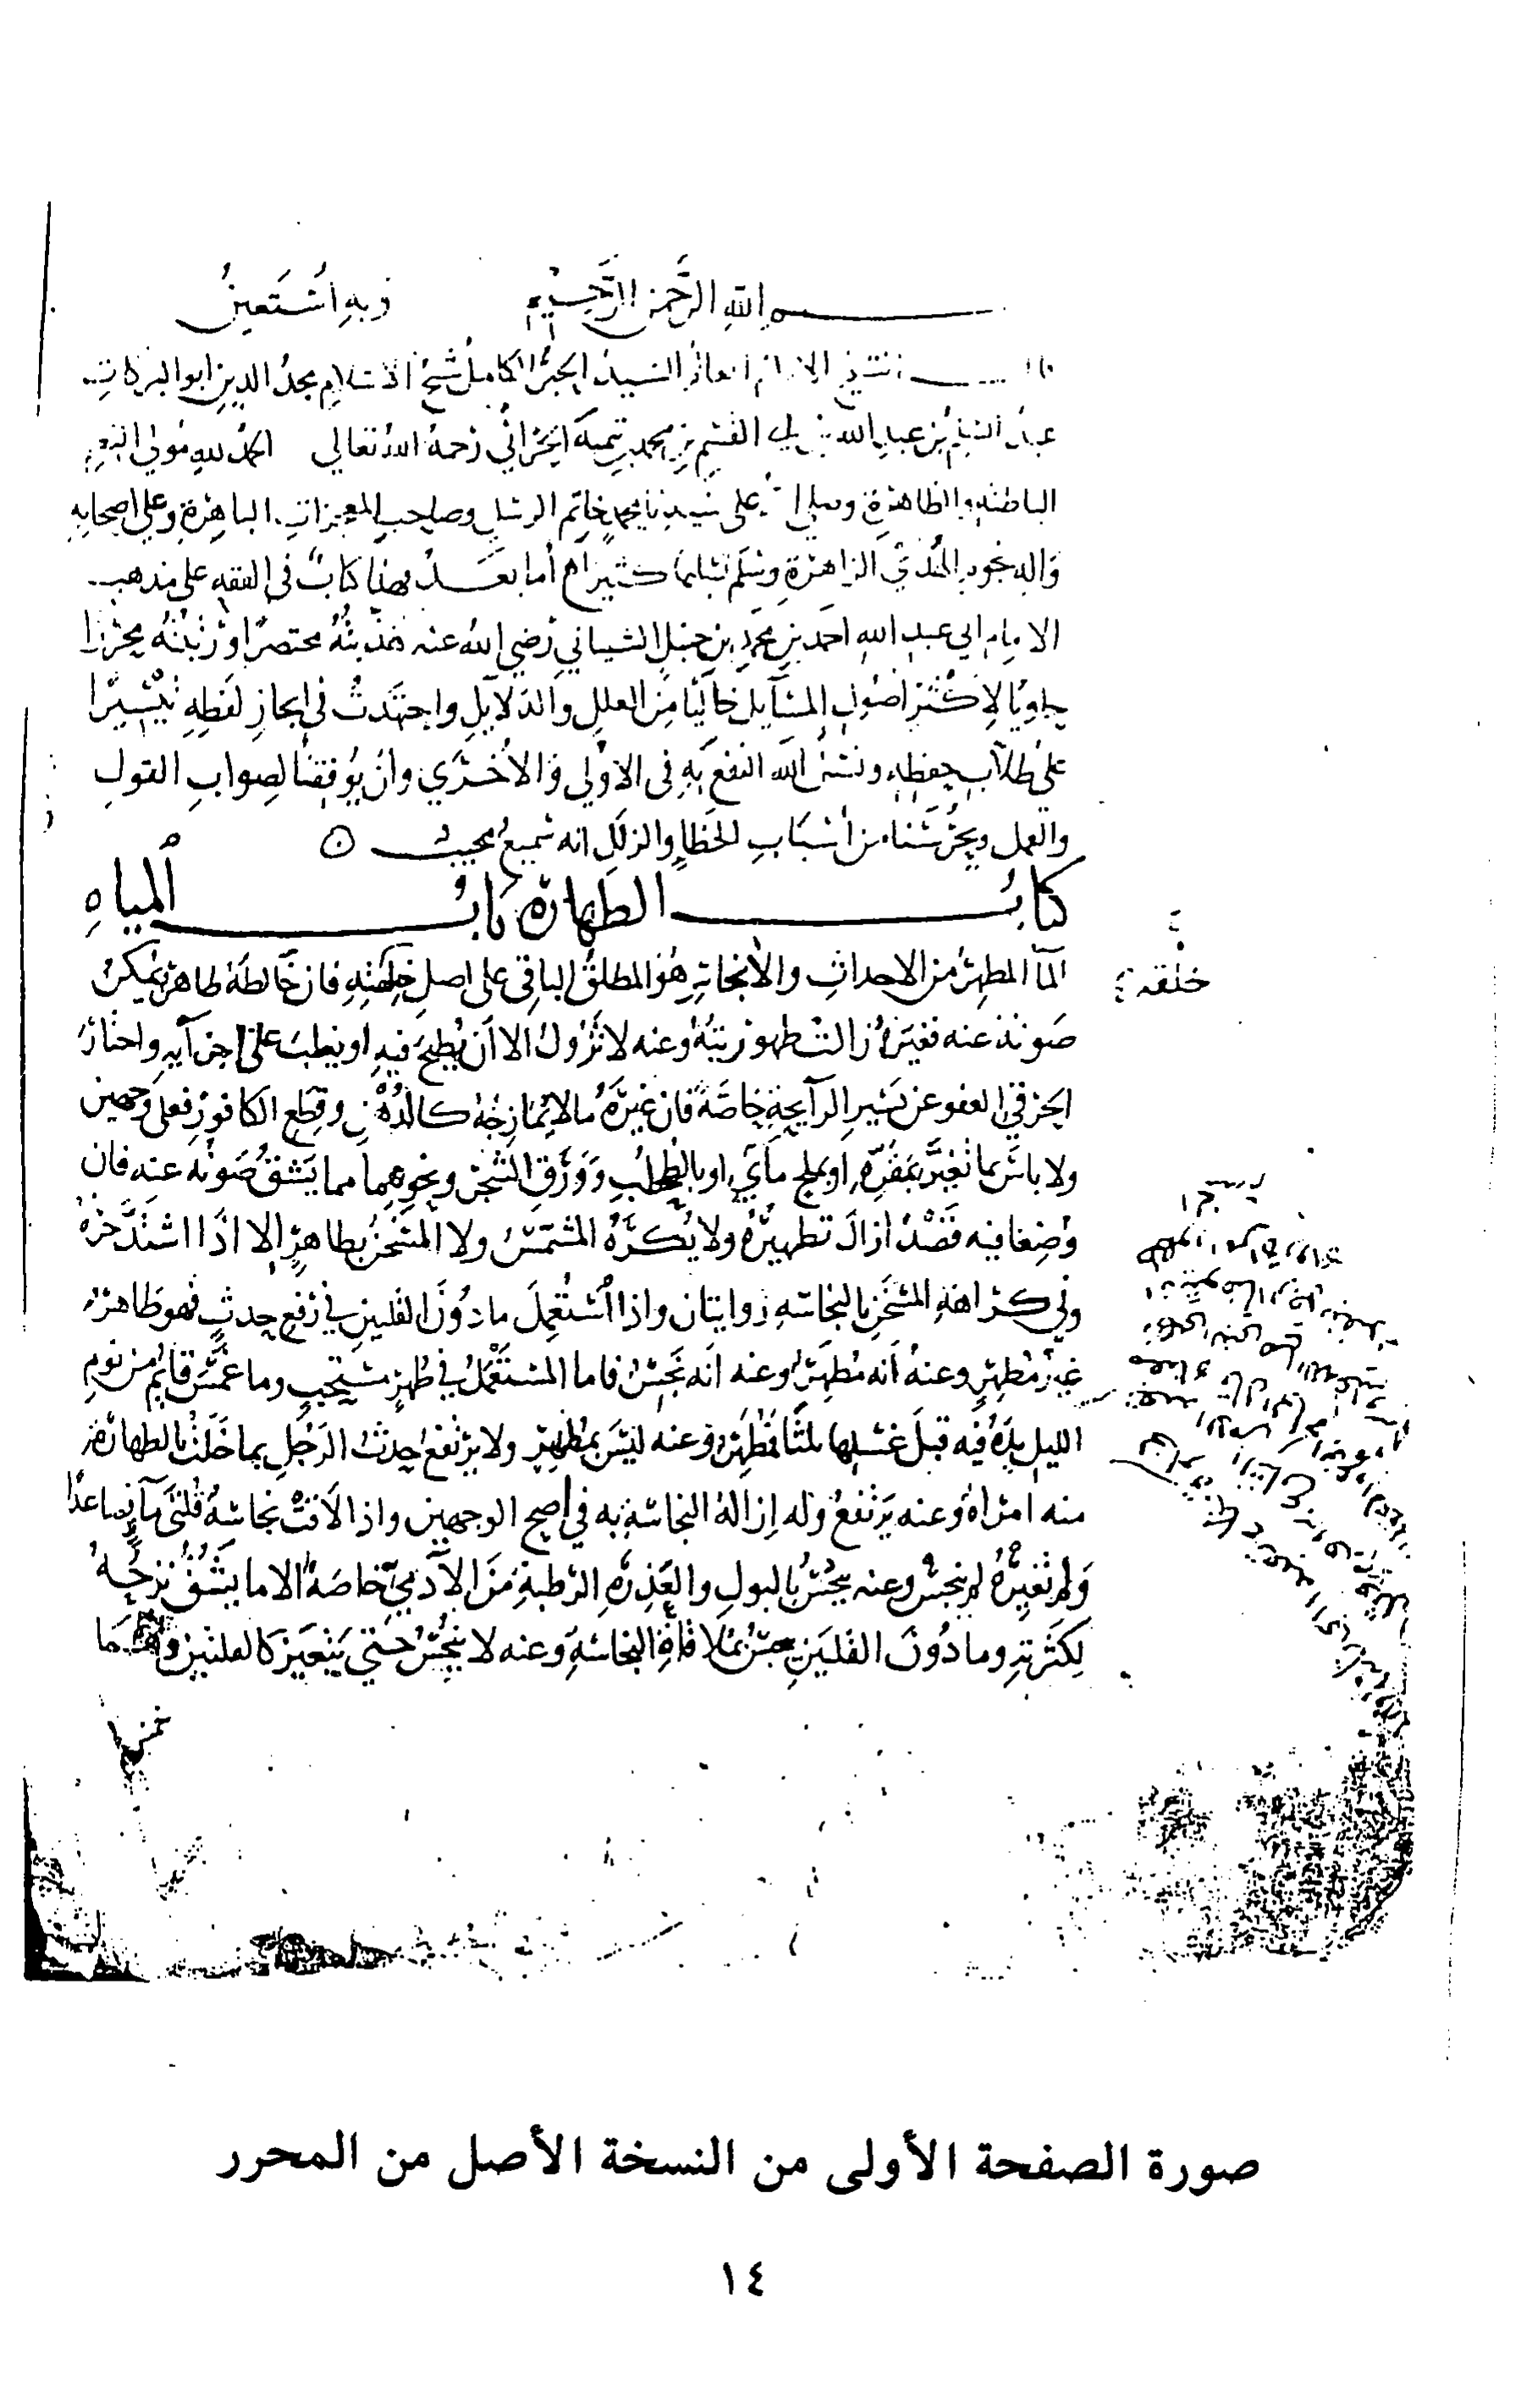 بسم الله الرحمن الرحيم وبه أستعين
قال الشيخ الإمام العالم السيد الحبر الكامل شيخ الاسلام مجد الدين ابو البركات
عبد السلام بن عبد الله بن ابي القسم بن محمد بن تيمية الحراني رحمه الله تعالى الحمد لله مولي النعم
الباطنة والظاهرة وصلى الله على سيدنا محمد خاتم الرسل وصاحب المعجزات الباهرة وعلى اصحابه
وآله نجوم الهدى الزاهرة وسلم تسليما كثيرا أما بعد فهذا كتاب في الفقه على مذهب
الامام ابي عبد الله احمد بن محمد بن حنبل الشيباني رضي الله عنه هذبته مختصرا ورتبته محررا
حاويا لاكثر اصول المسايل خاليا من العلل والدلايل واجتهدت في ايجاز لفظه تيسيرا
على طلاب حفظه ونسئل الله النفع به في الاولى والأخرى وان يوفقنا لصواب القول
والعمل ويحرسنا من أسباب الخطا والزلل انه سميع مجيب
كتاب الطهارة باب المياه
الما المطهر من الاحداث والأنجاس هو المطلق الباقي على اصل خلقته فان خالطه طاهر يمكن
خلقته
صونه عنه فغيره زالت طهوريته وعنه لا تزول الا أن يطبخ فيه او يغلب على اجزآيه واختار
الخرقي العفو عن يسير الرآيحة خاصة فان غيره ما لا يمازجه كالدهن وقطع الكافور فعلى وجهين
ولا باس بما تغير بمقره او بملح مآي او بالطحلب وورق الشجر ونحوهما مما يشق صونه عنه فان
وضعا فيه قصدا زال تطهيره ولا يكره المشمس ولا المسخن بطاهر إلا اذا اشتد حره
وفي كراهة المسخن بالنجاسة روايتان واذا استعمل ما دون القلتين في رفع حدث فهو طاهر
غير مطهر وعنه أنه مطهر وعنه انه نجس فاما المستعمل في طهر مستحب وما غمس قايم من نوم
الليل يده فيه قبل غسلها ثلثا فمطهر وعنه ليس بمطهر ولا يرتفع حدث الرجل بما خلت بالطهارة
منه امراة وعنه يرتفع وله إزالة النجاسة به في اصح الوجهين واذا لاقت نجاسة قلتي مآ فصاعدا
ولم تغيره لم ينجس وعنه ينجس بالبول والعذرة الرطبة من الآدمي خاصة الا ما يشق نزحه
لكثرته وما دون القلتين ينجس بملاقاة النجاسة وعنه لا ينجس حتى يتغير كالقلتين وهما
خمس
صورة الصفحة الأولى من النسخة الأصل من المحرر
١٤